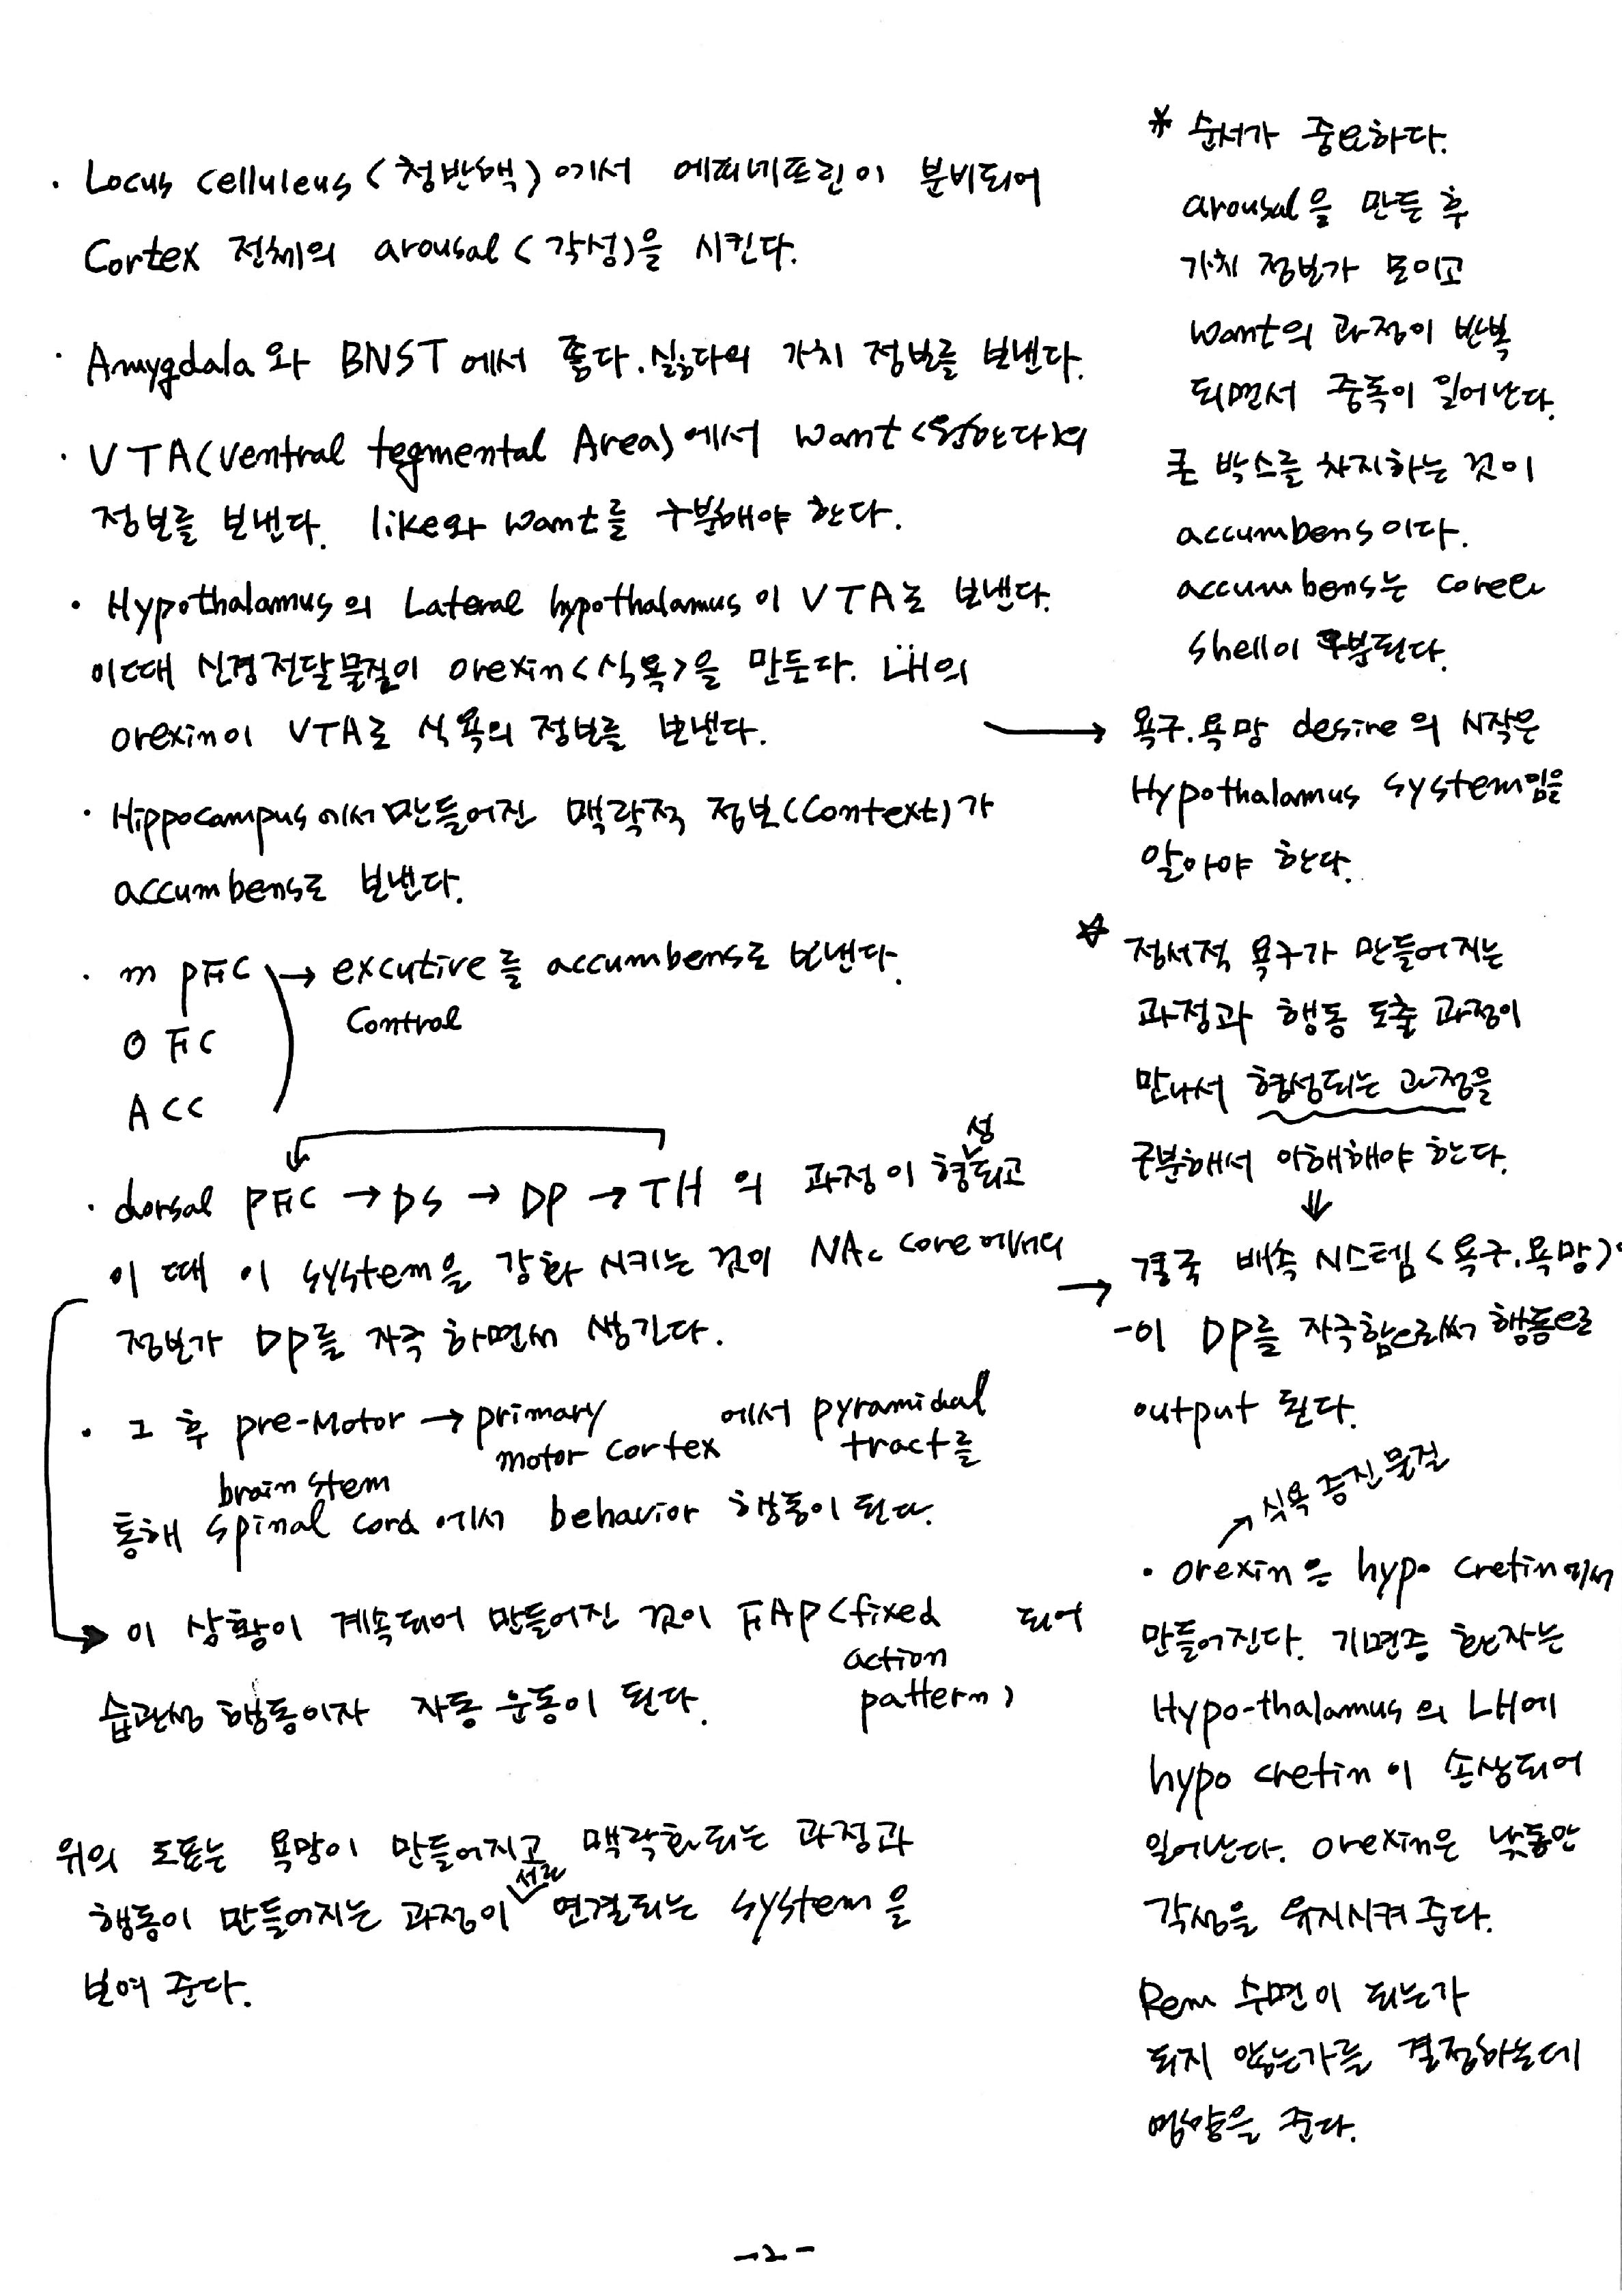 · Locus celluleus (청반핵)에서 에피네프린이 분비되어
Cortex 전체의 arousal (각성)을 시킨다.
· Amygdala와 BNST에서 좋다.싫다의 가치 정보를 보낸다.
· VTA(ventral tegmental Area)에서 want<원한다>의
정보를 보낸다. like와 want를 구분해야 한다.
· Hypothalamus의 Lateral hypothalamus이 VTA로 보낸다.
이때 신경전달물질이 orexin<식욕>을 만든다. LH의
orexin이 VTA로 식욕의 정보를 보낸다.
· Hippocampus에서 만들어진 맥락적 정보(Context)가
accumbens로 보낸다.
· m PFC → excutive를 accumbens로 보낸다.
control
O FC
ACC
· dorsal PFC → DS → DP → TH 의 과정이 형성되고
이 때 이 system을 강화 시키는 것이 NAc core에서의
정보가 DP를 자극 하면서 생긴다.
· 그 후 pre-Motor → primary 에서 pyramidal
motor cortex tract를
brain stem
통해 spinal cord에서 behavior 행동이 된다.
→ 이 상황이 계속되어 만들어진 것이 FAP<fixed 되어
action
습관성 행동이자 자동 운동이 된다. pattern)
위의 도표는 욕망이 만들어지고 맥락화되는 과정과
행동이 만들어지는 과정이 서로 연결되는 system을
보여 준다.
* 순서가 중요하다.
arousal을 만든 후
가치 정보가 모이고
want의 과정이 반복
되면서 중독이 일어난다.
큰 박스를 차지하는 것이
accumbens이다.
accumbens는 core와
shell이 구분된다.
→ 욕구.욕망 desire의 시작은
Hypothalamus system임을
알아야 한다.
☆ 정서적 욕구가 만들어지는
과정과 행동 도출 과정이
만나서 형성되는 과정을
구분해서 이해해야 한다.
⇓
→ 결국 배측 시스템<욕구.욕망>
-이 DP를 자극함으로써 행동으로
output 된다.
→ 식욕 증진 물질
· orexin은 hypo cretin에서
만들어진다. 기면증 환자는
Hypo-thalamus의 LH에
hypo cretin이 손상되어
일어난다. orexin은 낮동안
각성을 유지시켜 준다.
Rem 수면이 되는가
되지 않는가를 결정하는데
영향을 준다.
-2-